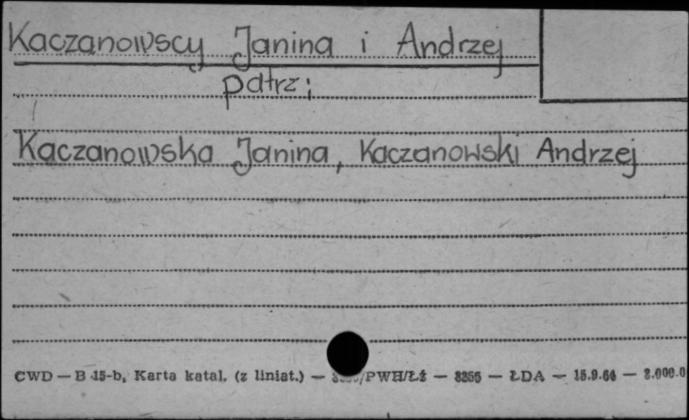 Kaczanowscy Janina i Andrzej
patrz:
Kaczanowska Janina, Kaczanowski Andrzej
CWD — B 15-b, Karta katal. (z liniat.) — /PWH/Łż — 8255 — ŁDA — 15.9.64 — 2.000.0